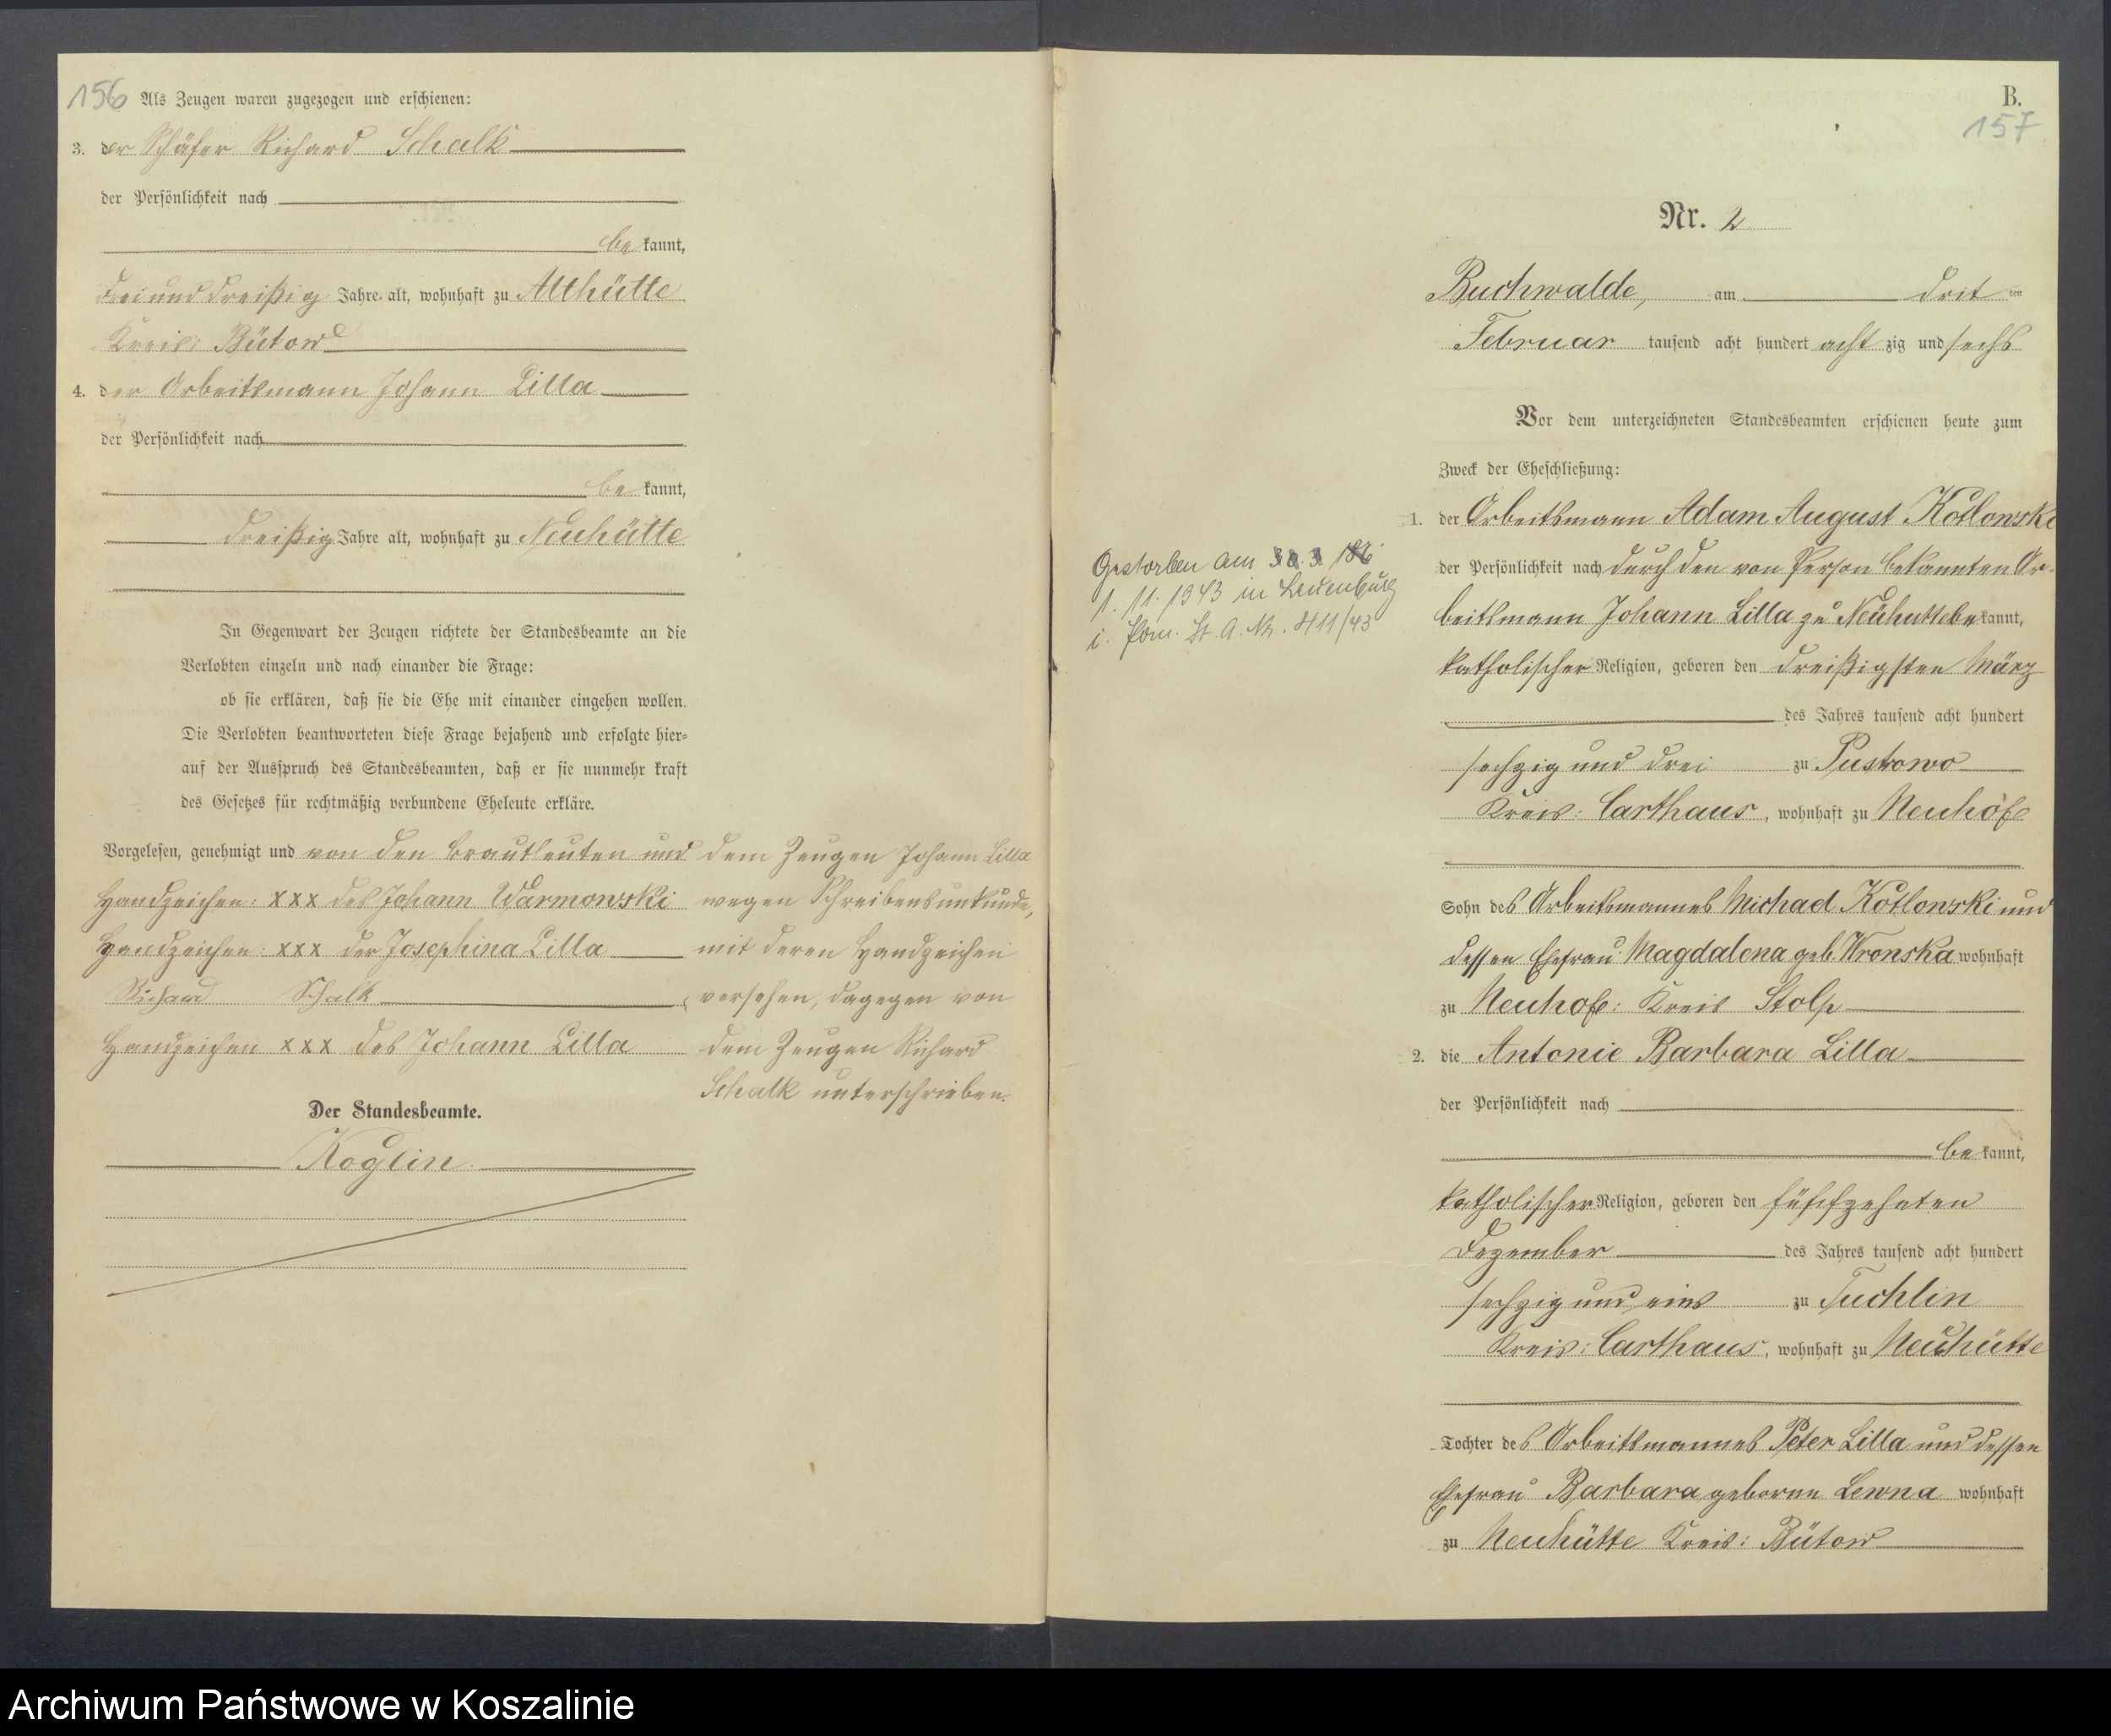 156 Als Zeugen waren zugezogen und erschienen:
3. der Schäfer Richard Schalk
der Persönlichkeit nach
be kannt,
drei und dreißig Jahre alt, wohnhaft zu Althütte
Kreis: Bütow
4. der Arbeitsmann Johann Lilla
der Persönlichkeit nach
be kannt,
dreißig Jahre alt, wohnhaft zu Neuhütte
In Gegenwart der Zeugen richtete der Standesbeamte an die
Verlobten einzeln und nach einander die Frage:
ob sie erklären, daß sie die Ehe mit einander eingehen wollen.
Die Verlobten beantworteten diese Frage bejahend und erfolgte hier-
auf der Ausspruch des Standesbeamten, daß er sie nunmehr kraft
des Gesetzes für rechtmäßig verbundene Eheleute erkläre.
Vorgelesen, genehmigt und von den Brautleuten und dem Zeugen Johann Lilla
Handzeichen: xxx des Johann Warmowski wegen Schreibensunkunde,
Handzeichen: xxx der Josephina Lilla mit deren Handzeichen
Richard Schalk versehen, dagegen von
Handzeichen xxx des Johann Lilla dem Zeugen Richard
Schalk unterschrieben.
Der Standesbeamte.
Koglin
B.
157
Nr. 2
Buchwalde, am drit ten
Februar tausend acht hundert acht zig und sechs
Vor dem unterzeichneten Standesbeamten erschienen heute zum
Zweck der Eheschließung:
1. der Arbeitsmann Adam August Kotlowski
der Persönlichkeit nach durch den von Person bekannten Ar-
beitsmann Johann Lilla zu Neuhutte be kannt,
katholischer Religion, geboren den dreißigsten März
des Jahres tausend acht hundert
sechzig und drei zu Pustowo
Kreis: Carthaus, wohnhaft zu Neuhof
Sohn des Arbeitsmannes Michael Kotlowski und
dessen Ehefrau Magdalena geb. Wronska wohnhaft
zu Neuhof: Kreis Stolp
2. die Antonie Barbara Lilla
der Persönlichkeit nach
be kannt,
katholischer Religion, geboren den fünfzehnten
Dezember des Jahres tausend acht hundert
sechzig und eins zu Tuchlin
Kreis: Carthaus, wohnhaft zu Neuhütte
Tochter des Arbeitsmannes Peter Lilla und dessen
Ehefrau Barbara geborne Lewna wohnhaft
zu Neuhütte Kreis: Bütow
Gestorben am
1. 11. 1943 in Lauenburg
i. Pom. St. A. Nr. 411/43
Archiwum Państwowe w Koszalinie